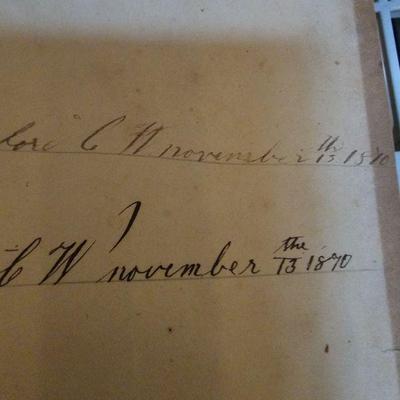 C W november th 13 1870
C W november the 13 1870